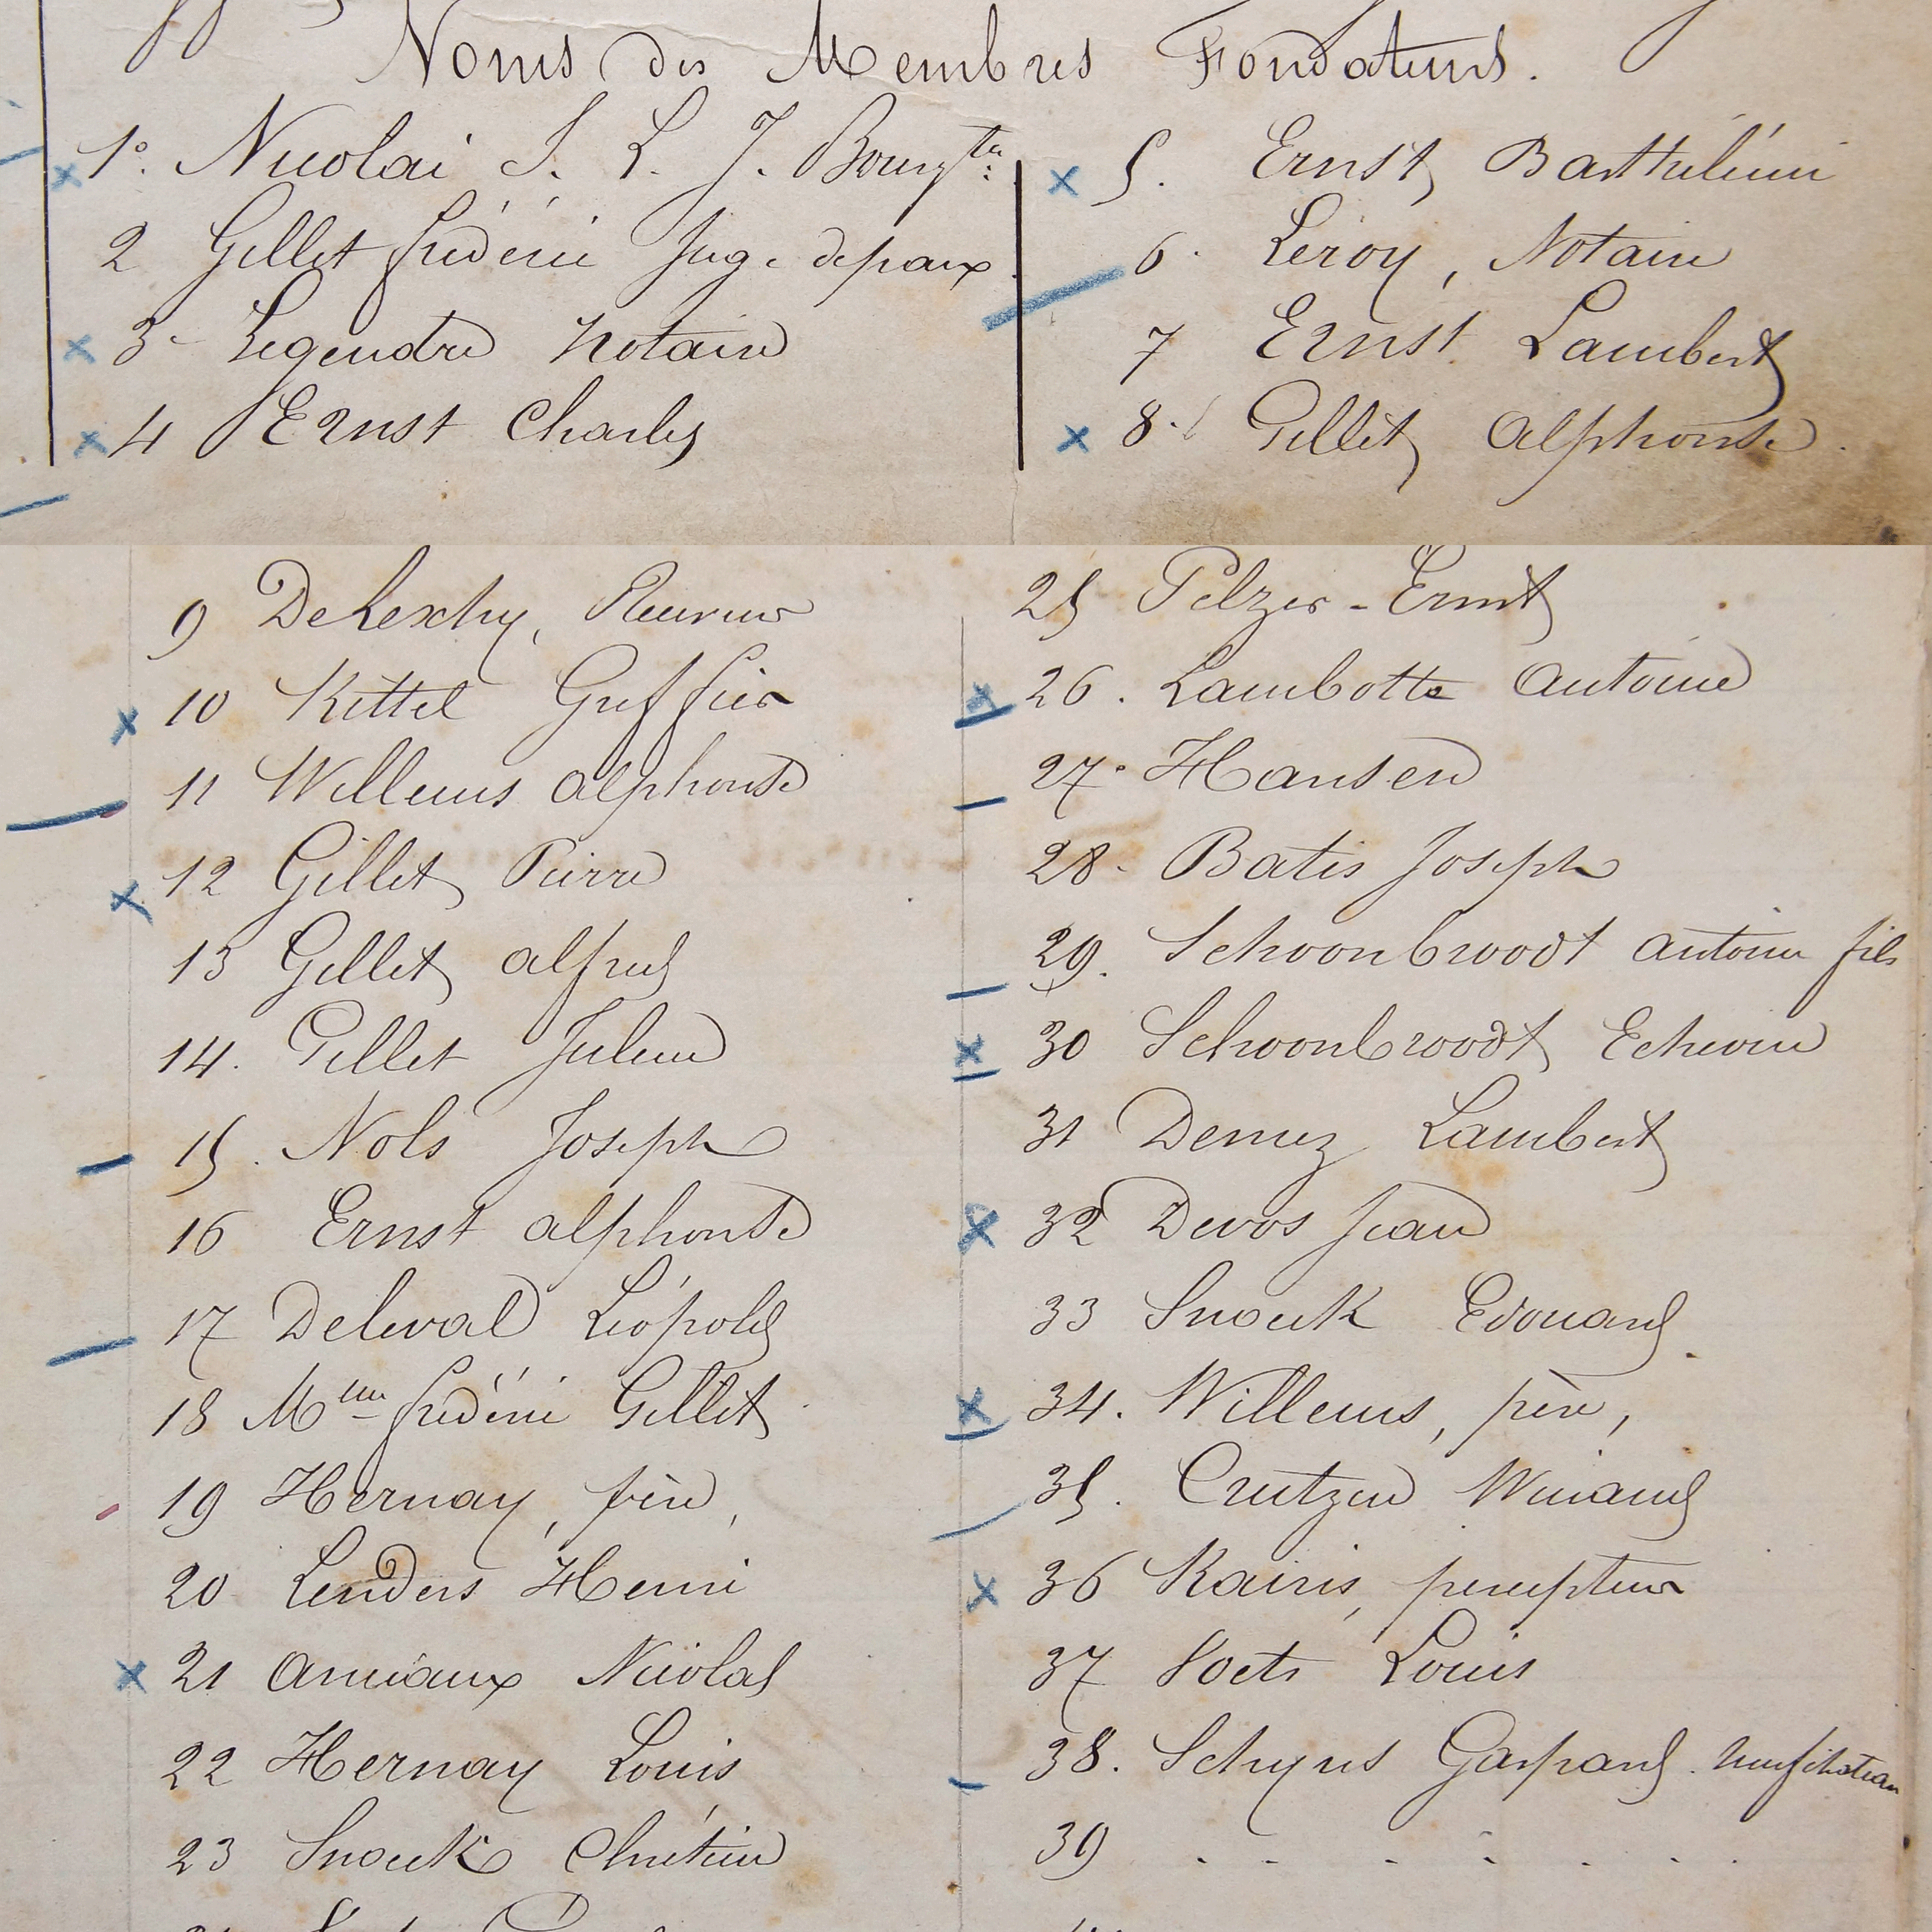 Noms des Membres Fondateurs.
1º. Nicolaï S. L. J. Bourgtre
2 Gillet frédéric Juge de paix.
3 - Legendre Notaire
4 Ernst Charles
5. Ernst Barthélémi
6. Leroy, Notaire
7 Ernst Lambert
8. Gillet Alphonse.
9 DeLexhy, Receveur
10 Kittel Greffier
11 Willems Alphonse
12 Gillet Pierre
13 Gillet Alfred
14. Gillet Julien
15. Nols Joseph
16 Ernst Alphonse
17 Deleval Léopold
18 Mme frédéric Gillet
19 Hernay, père,
20 Lenders Henri
21 Amiaux Nicolas
22 Hernay Louis
23 Snoeck Chrétien
25 Pelzer-Ernst
26. Lambotte Antoine
27. Hansen
28. Batis Joseph
29. Schoonbroodt Antoine fils
30 Schoonbroodt Echevin
31 Demez Lambert
32 Devos Jean
33 Snoeck Edouard.
34. Willems, père,
35. Crutzen Winand
36 Kairis, percepteur
37 Voets Louis
38. Schyns Gaspard. Neufchateau
39 . . . . . . .